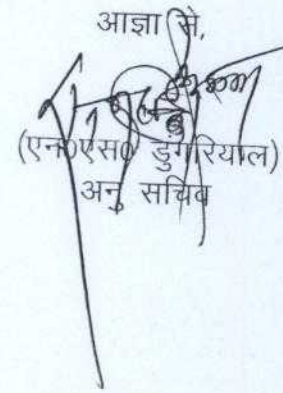 आज्ञा से,
(एन०एस० डुंगरियाल)
अनु सचिव